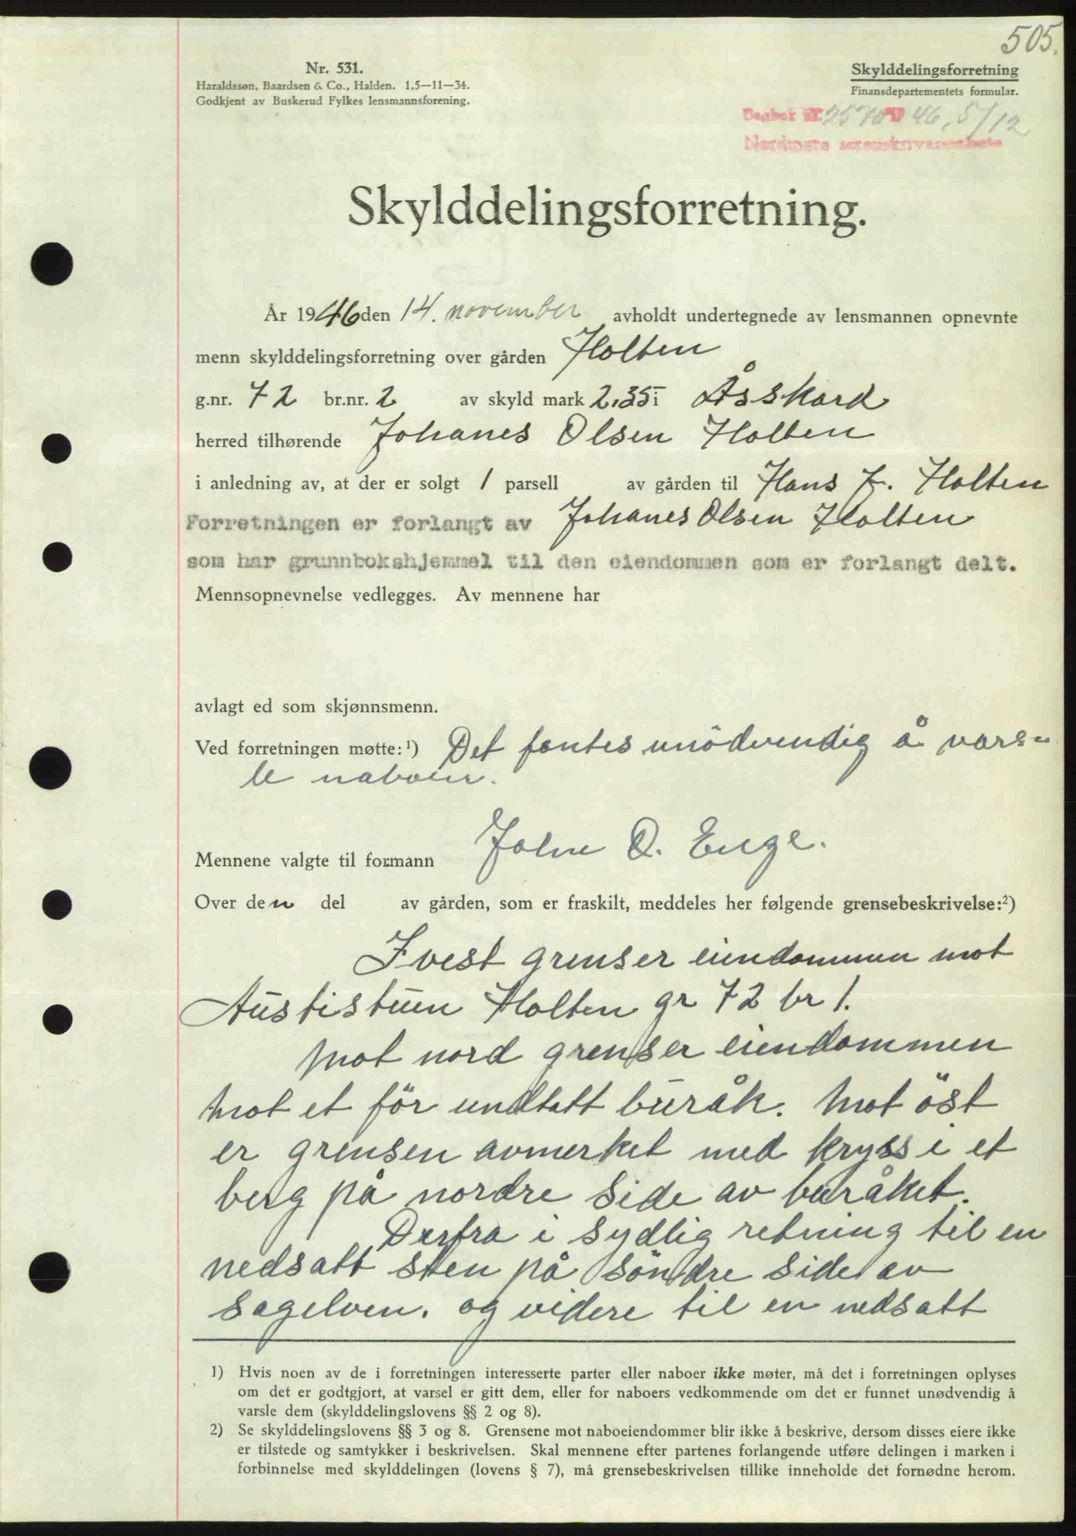 505.
Nr. 531.
Haraldssøn, Baardsen & Co., Halden. 1,5—11—34.
Godkjent av Buskerud Fylkes lensmannsforening.
Skylddelingsforretning
Finansdepartementets formular.
Dagbok nr. 2570 19 46, 5/12
Nordmøre sorenskriverembete
Skylddelingsforretning.
År 1946 den 14. november avholdt undertegnede av lensmannen opnevnte
menn skylddelingsforretning over gården Holten
g.nr. 72 br.nr. 2 av skyld mark 2,35 i Åsskard
herred tilhørende Johanes Olsen Holten
i anledning av, at der er solgt 1 parsell av gården til Hans J. Holten
Forretningen er forlangt av Johanes Olsen Holten
som har grunnbokshjemmel til den eiendommen som er forlangt delt.
Mennsopnevnelse vedlegges. Av mennene har
avlagt ed som skjønnsmenn.
Ved forretningen møtte:¹) Det fantes unödvendig å vars-
le naboer.
Mennene valgte til formann John O. Enge.
Over den del av gården, som er fraskilt, meddeles her følgende grensebeskrivelse:²)
I vest grenser eiendommen mot
Austistuen Holten gr 72 br 1.
Mot nord grenser eiendommen
mot et för undtatt buråk. Mot öst
er grensen avmerket med kryss i et
berg på nordre side av buråket.
Derfra i sydlig retning til en
nedsatt sten på söndre side av
sagelven. og videre til en nedsatt
1) Hvis noen av de i forretningen interesserte parter eller naboer ikke møter, må det i forretningen oplyses
om det er godtgjort, at varsel er gitt dem, eller for naboers vedkommende om det er funnet unødvendig å
varsle dem (skylddelingslovens §§ 2 og 8).
2) Se skylddelingslovens §§ 3 og 8. Grensene mot naboeiendommer blir ikke å beskrive, dersom disses eiere ikke
er tilstede og samtykker i beskrivelsen. Skal mennene efter partenes forlangende utføre delingen i marken i
forbinnelse med skylddelingen (lovens § 7), må grensebeskrivelsen tillike inneholde det fornødne herom.